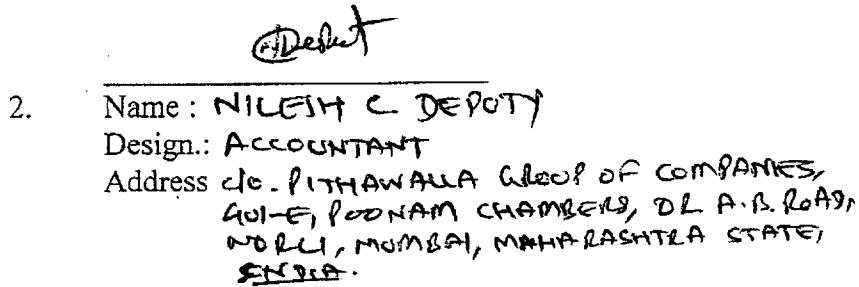 2. Name : NILESH C DEPUTY
Design.: ACCOUNTANT
Address c/o. PITHAWALLA GROUP OF COMPANIES,
POONAM CHAMBERS, DR A.B. ROAD,
WORLI, MUMBAI, MAHARASHTRA STATE,
INDIA.